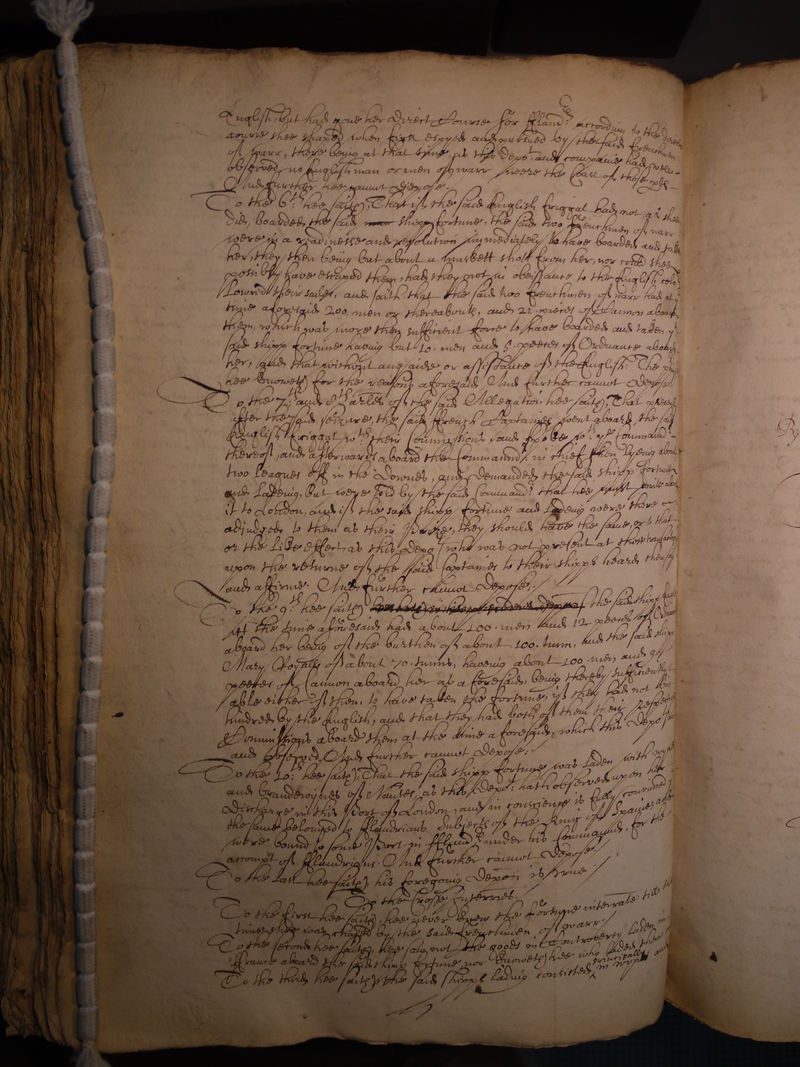 English, but had gone her direct Course for Fland: according to the direct
course shee shaped when first espyed and pursued by the said Frenchmen
of warr, there being at that tyme, as this depot and companie had
observed, no Englishman or men of warr neere the Coast of those parts
And further hee cannot depose.
To the 6th hee saith That if the said English friggat had not as shee
did, boarded the said shipp fortune, the said two frenchmen of warr
were in a readinesse and resolution immediately to have boarded and taken
her, they then being but about a muskett shott from her, nor could shee
possibly have escaped them, had they not in obeisance to the English
Lowred their sailes, and saith that the said two frenchmen of warr had at
time aforesaid 200 men or thereabouts, and 21 peeces of Cannon aboard
them, which was more then sufficient force to have boarded and taken the
said shipp fortune having but 10 men and 8 peeces of Ordnance aboard
her, and that without any aide or assistance of the English. The
hee knoweth for the reasons aforesaid And further cannot depose
To the 7th and 8th articles of the said Allegation hee saith, That presently
after the said seizure, the said french Captaines went aboard the said
English friggat with their Commissions, and spoke to the Command
thereof, and afterwards aboard the Command in chief then lyeing about
two leagues off in the Downes, and demanded the said shipp fortune
and Ladeing, but were told by the said Command that hee
it to London, and if the said shipp fortune and Ladeing were there
adjudged to them as their Prize, they should have the same, or to that
or the like effect, as this depot (who was not present at those
upon the returne of the said Captaines to their shipps heard them say
and affirme. And further cannot depose.
To the 9th hee saith the said shipp
at the time aforesaid had about 100 men and 12 peeces of
aboard her being of the burthen of about 100 tunns, and the said shipp
Mary Royall of about 70 tunns, haveing about 100 men and 9
peeces of Cannon aboard her as aforesaid, being thereby sufficiently
able either of them to have taken the fortune if they had not bin
hindred by the English, and that they had both of them their respective
Commissions aboard them at the time aforesaid, which this deposed
and observed, And further cannot depose.
To the 10th hee saith, That the said shipp fortune was laden with
and brandewynes of Nantes, as this depot hath observed upon her
discharge in this Port of London, and in conscience is fully convinced
the same belonged to Flandrians, Subjects of the King of Spaine and
were bound to some Port in Fland under his Command, for the
accompt of Flandrians. And further cannot depose.
To the last hee saith his foregoing deposon is true
To the Crosse Interries.
To the first hee saith, hee never knew the fortune interrate till the
time shee was chased by the said Frenchmen of warr.
To the second hee saith, hee saw not the goods in Controversy laden in
France aboard the said shipp fortune nor knoweth hee who laded them
To the third hee saith, the said shipps lading consisted principally in wynes and